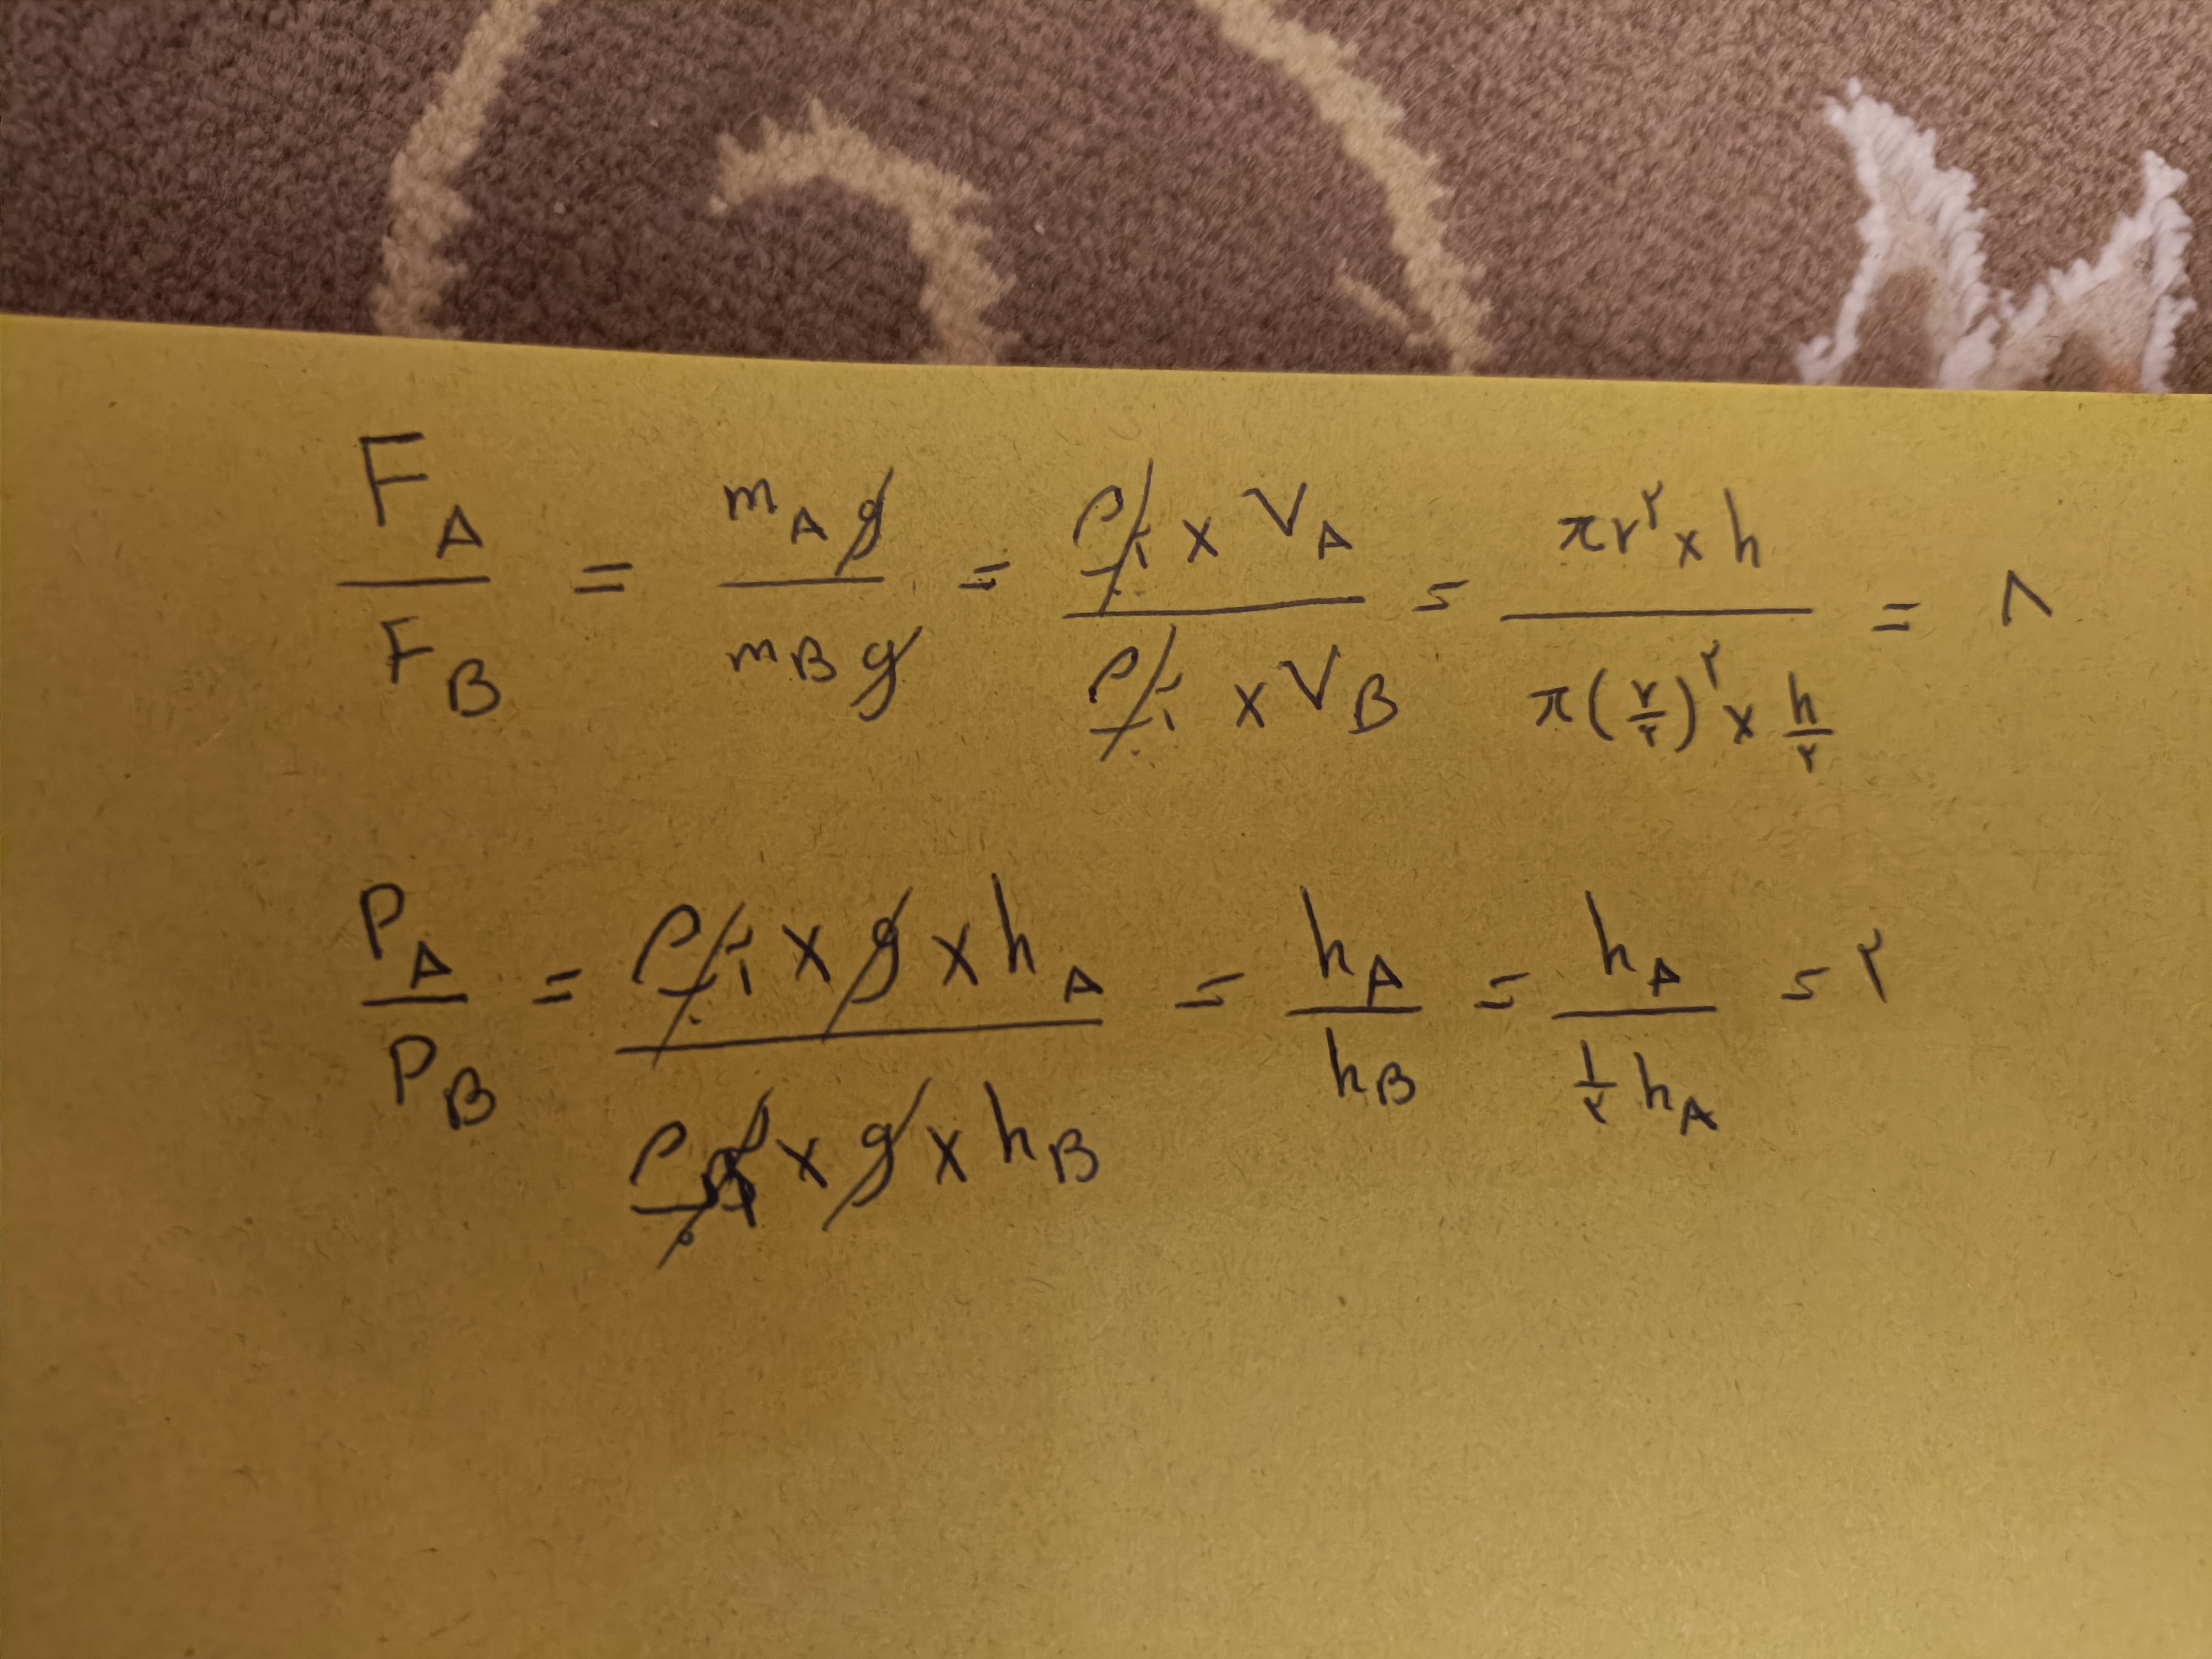 F_A / F_B = m_A g / m_B g = ρ_آب × V_A / ρ_آب × V_B = πr^۲ × h / π(r/۲)^۲ × h/۲ = ۸
P_A / P_B = ρ_آب × g × h_A / ρ × g × h_B = h_A / h_B = h_A / ۱/۲ h_A = ۲